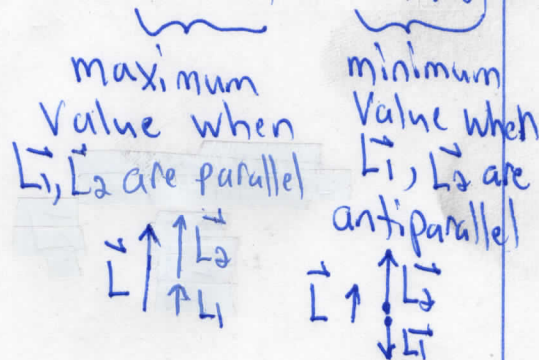 maximum
value when
L⃗₁, L⃗₂ are parallel
L⃗
L⃗₂
L₁
minimum
value when
L⃗₁, L⃗₂ are
antiparallel
L⃗
L⃗₂
L⃗₁